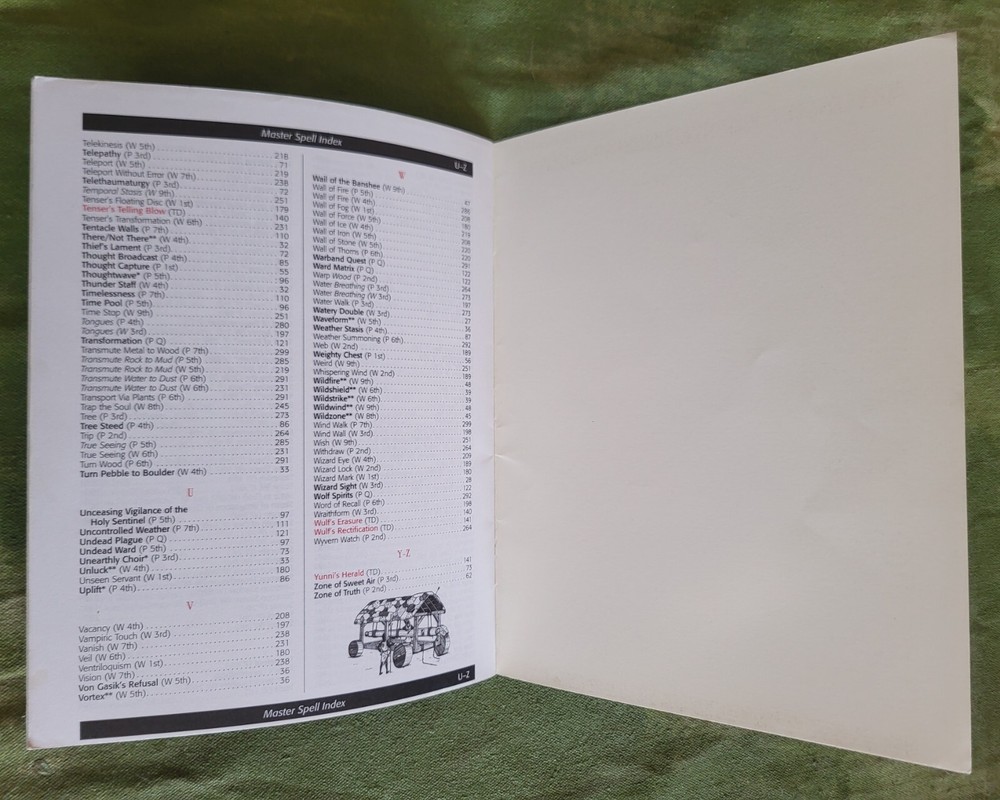 Master Spell Index
U–Z
Telekinesis (W 5th) 218
Telepathy (P 3rd) 71
Teleport (W 5th) 219
Teleport Without Error (W 7th) 238
Telethaumaturgy (P 3rd) 72
Temporal Stasis (W 9th) 251
Tenser's Floating Disc (W 1st) 179
Tenser's Telling Blow (TD) 140
Tenser's Transformation (W 6th) 231
Tentacle Walls (P 7th) 110
There/Not There** (W 4th) 32
Thief's Lament (P 3rd) 72
Thought Broadcast (P 4th) 85
Thought Capture (P 1st) 55
Thoughtwave* (P 5th) 96
Thunder Staff (W 4th) 32
Timelessness (P 7th) 110
Time Pool (P 5th) 96
Time Stop (W 9th) 251
Tongues (P 4th) 280
Tongues (W 3rd) 197
Transformation (P Q) 121
Transmute Metal to Wood (P 7th) 299
Transmute Rock to Mud (P 5th) 285
Transmute Rock to Mud (W 5th) 219
Transmute Water to Dust (P 6th) 291
Transmute Water to Dust (W 6th) 231
Transport Via Plants (P 6th) 291
Trap the Soul (W 8th) 245
Tree (P 3rd) 273
Tree Steed (P 4th) 86
Trip (P 2nd) 264
True Seeing (P 5th) 285
True Seeing (W 6th) 231
Turn Wood (P 6th) 291
Turn Pebble to Boulder (W 4th) 33
U
Unceasing Vigilance of the
Holy Sentinel (P 5th) 97
Uncontrolled Weather (P 7th) 111
Undead Plague (P Q) 121
Undead Ward (P 5th) 97
Unearthly Choir* (P 3rd) 73
Unluck** (W 4th) 33
Unseen Servant (W 1st) 180
Uplift* (P 4th) 86
V
Vacancy (W 4th) 208
Vampiric Touch (W 3rd) 197
Vanish (W 7th) 238
Veil (W 6th) 231
Ventriloquism (W 1st) 180
Vision (W 7th) 238
Von Gasik's Refusal (W 5th) 36
Vortex** (W 5th) 36
W
Wail of the Banshee (W 9th) 47
Wall of Fire (P 5th) 286
Wall of Fire (W 4th) 208
Wall of Fog (W 1st) 180
Wall of Force (W 5th) 219
Wall of Ice (W 4th) 208
Wall of Iron (W 5th) 220
Wall of Stone (W 5th) 220
Wall of Thorns (P 6th) 291
Warband Quest (P Q) 122
Ward Matrix (P Q) 123
Warp Wood (P 2nd) 264
Water Breathing (P 3rd) 273
Water Breathing (W 3rd) 197
Water Walk (P 3rd) 273
Watery Double (W 3rd) 27
Waveform** (W 5th) 36
Weather Stasis (P 4th) 87
Weather Summoning (P 6th) 292
Web (W 2nd) 189
Weighty Chest (P 1st) 56
Weird (W 9th) 251
Whispering Wind (W 2nd) 189
Wildfire** (W 9th) 48
Wildshield** (W 6th) 39
Wildstrike** (W 6th) 39
Wildwind** (W 9th) 48
Wildzone** (W 8th) 45
Wind Walk (P 7th) 299
Wind Wall (W 3rd) 198
Wish (W 9th) 251
Withdraw (P 2nd) 264
Wizard Eye (W 4th) 209
Wizard Lock (W 2nd) 189
Wizard Mark (W 1st) 180
Wizard Sight (W 3rd) 28
Wolf Spirits (P Q) 122
Word of Recall (P 6th) 292
Wraithform (W 3rd) 198
Wulf's Erasure (TD) 140
Wulf's Rectification (TD) 141
Wyvern Watch (P 2nd) 264
Y-Z
Yunni's Herald (TD) 141
Zone of Sweet Air (P 3rd) 73
Zone of Truth (P 2nd) 62
Master Spell Index
U–Z